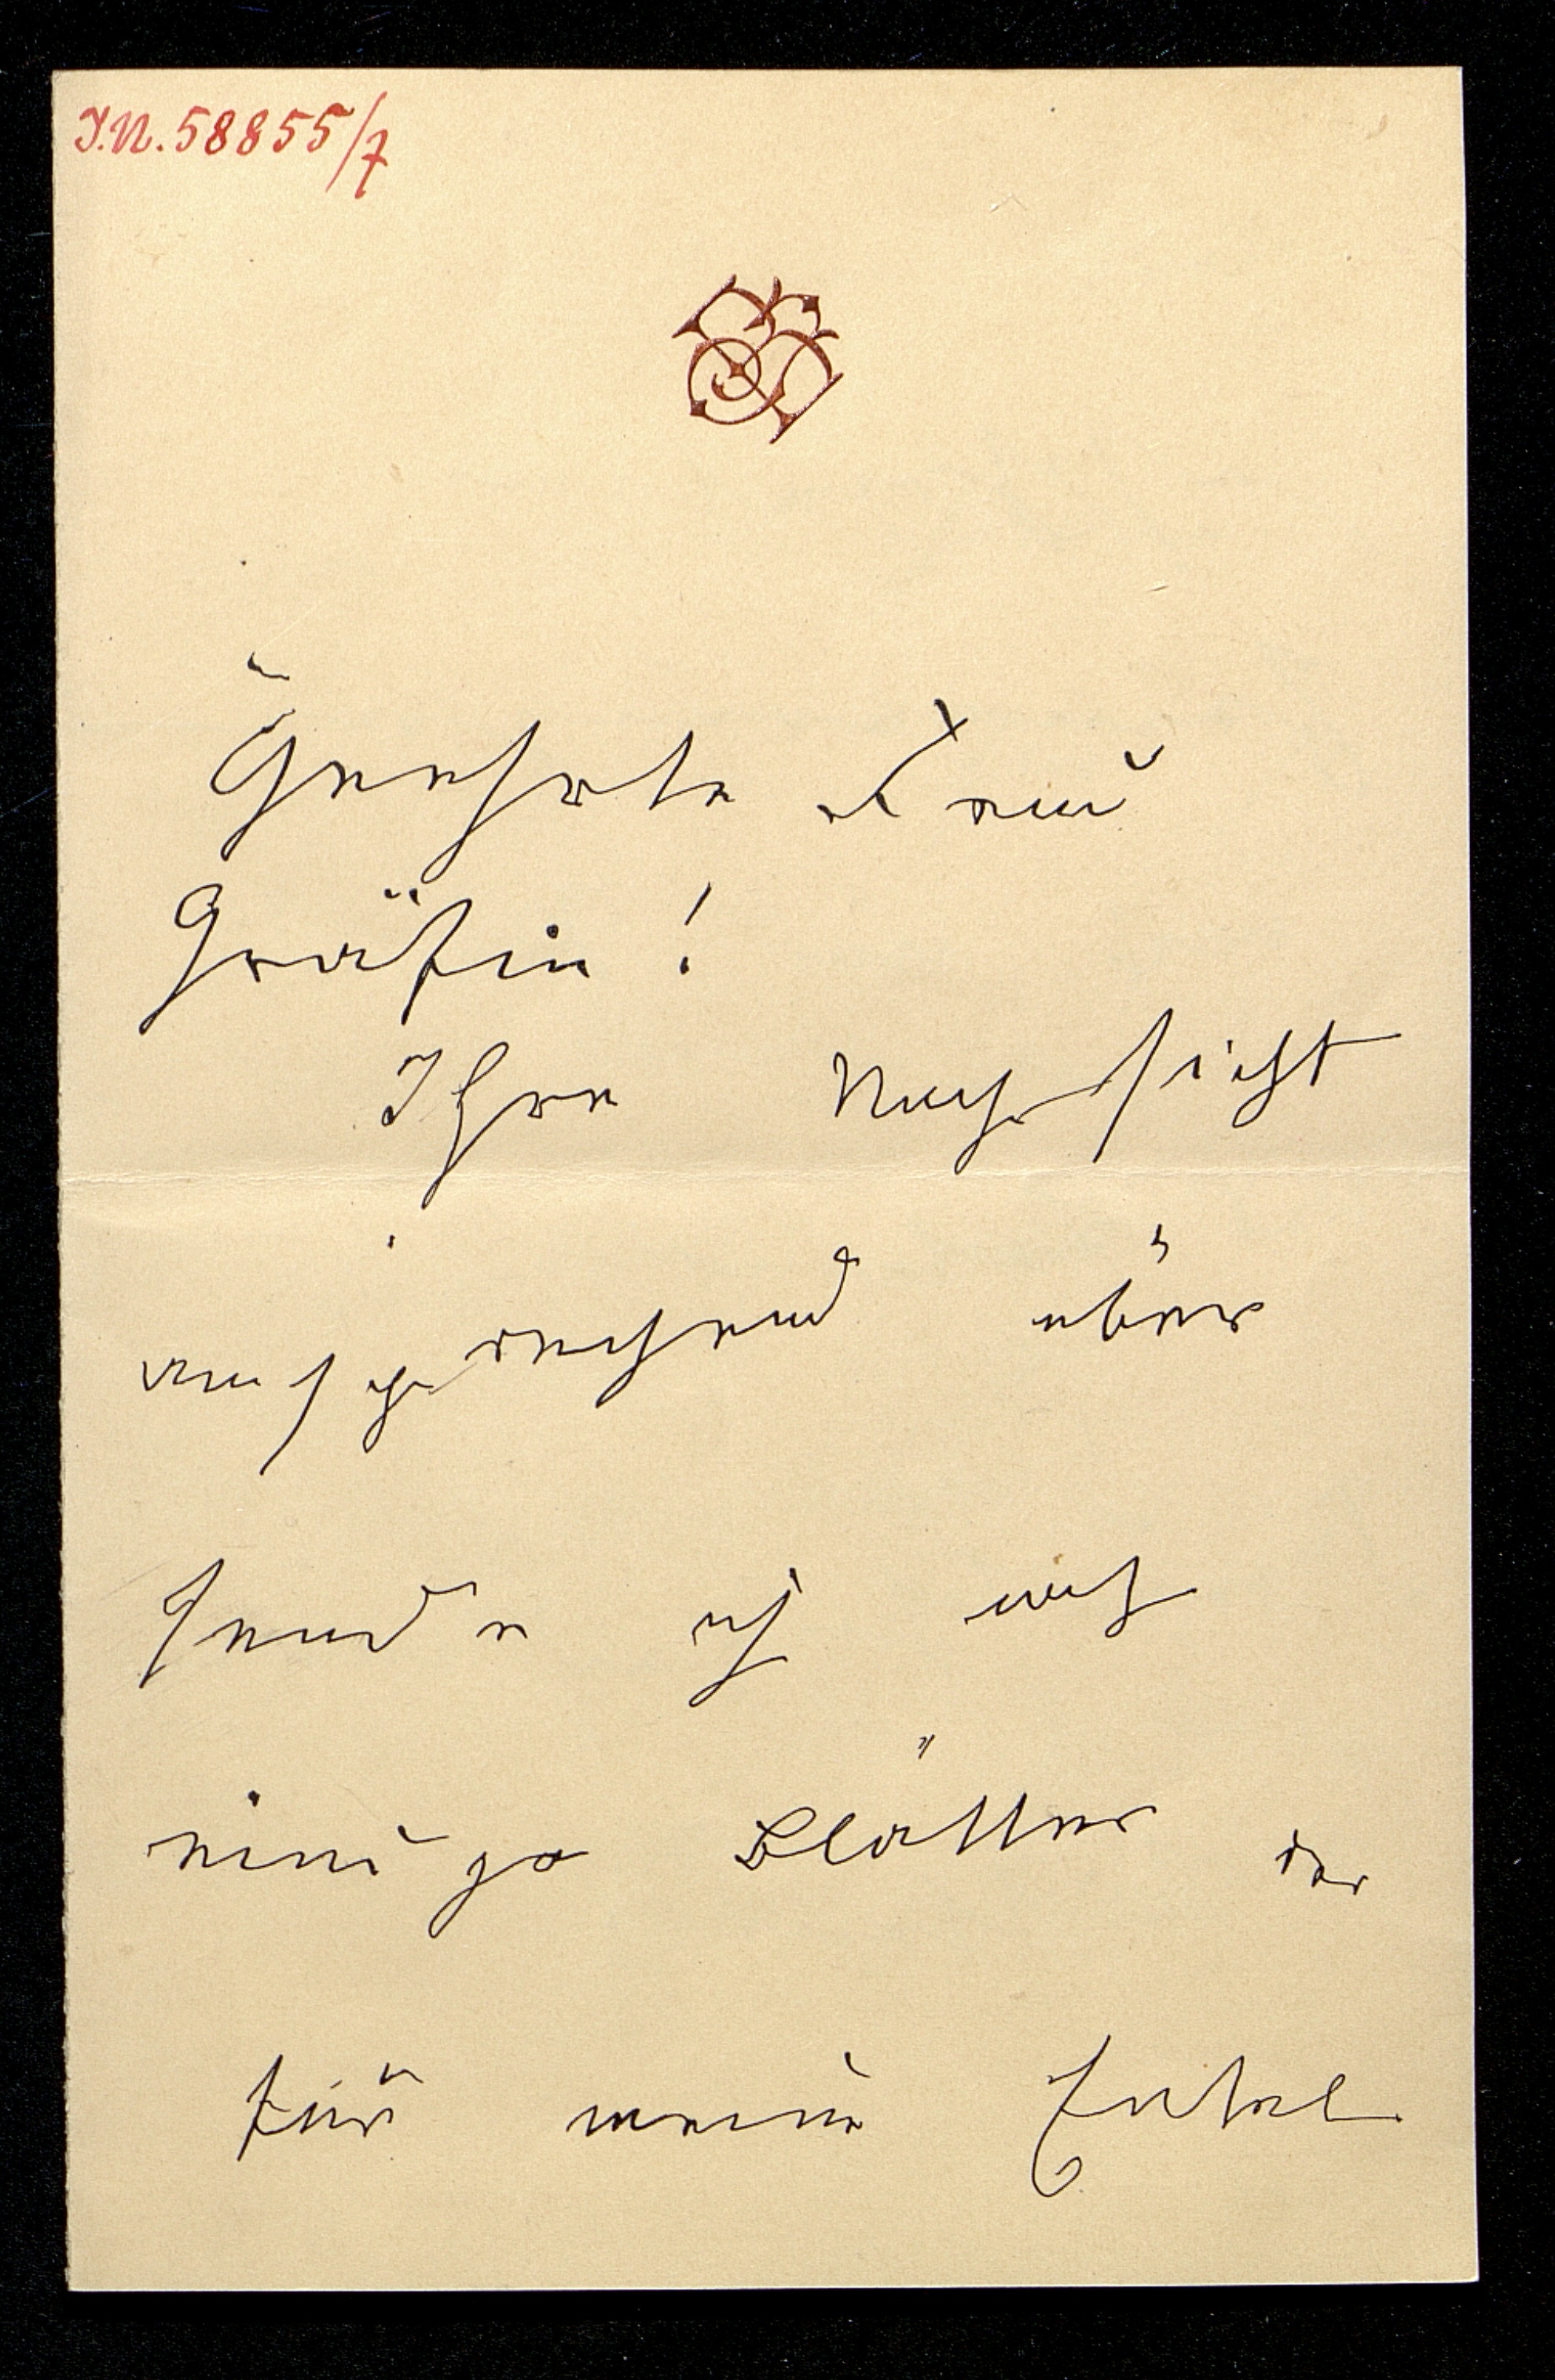 I.N. 58855/7
Geehrte Frau
Gräfin!
Ihre Nachsicht
ansprechend über
sende ich
einige Blätter der
für meine Enkel